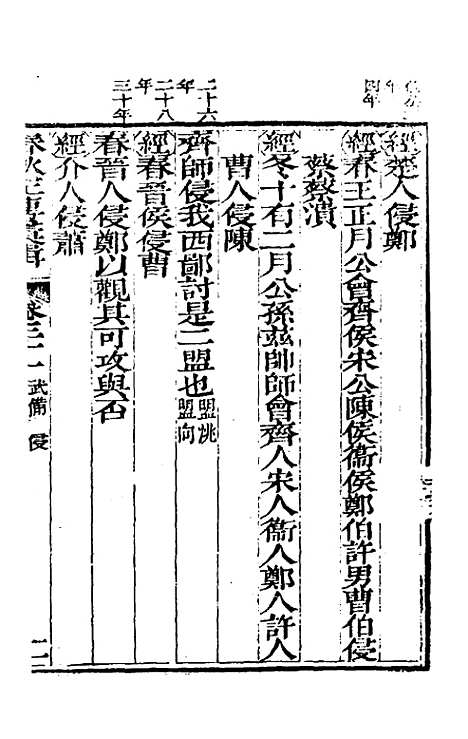 四年
經楚人侵鄭
經春王正月公會齊侯宋公陳侯衞侯鄭伯許男曹伯侵
蔡蔡潰
經冬十有二月公孫茲帥師會齊人宋人衞人鄭人許人
曹人侵陳
二十六年
齊師侵我西鄙討是二盟也盟洮盟向
二十八年
經春晉侯侵曹
三十年
春晉人侵鄭以觀其可攻與否
經介人侵蕭
卷三十一 武備 侵